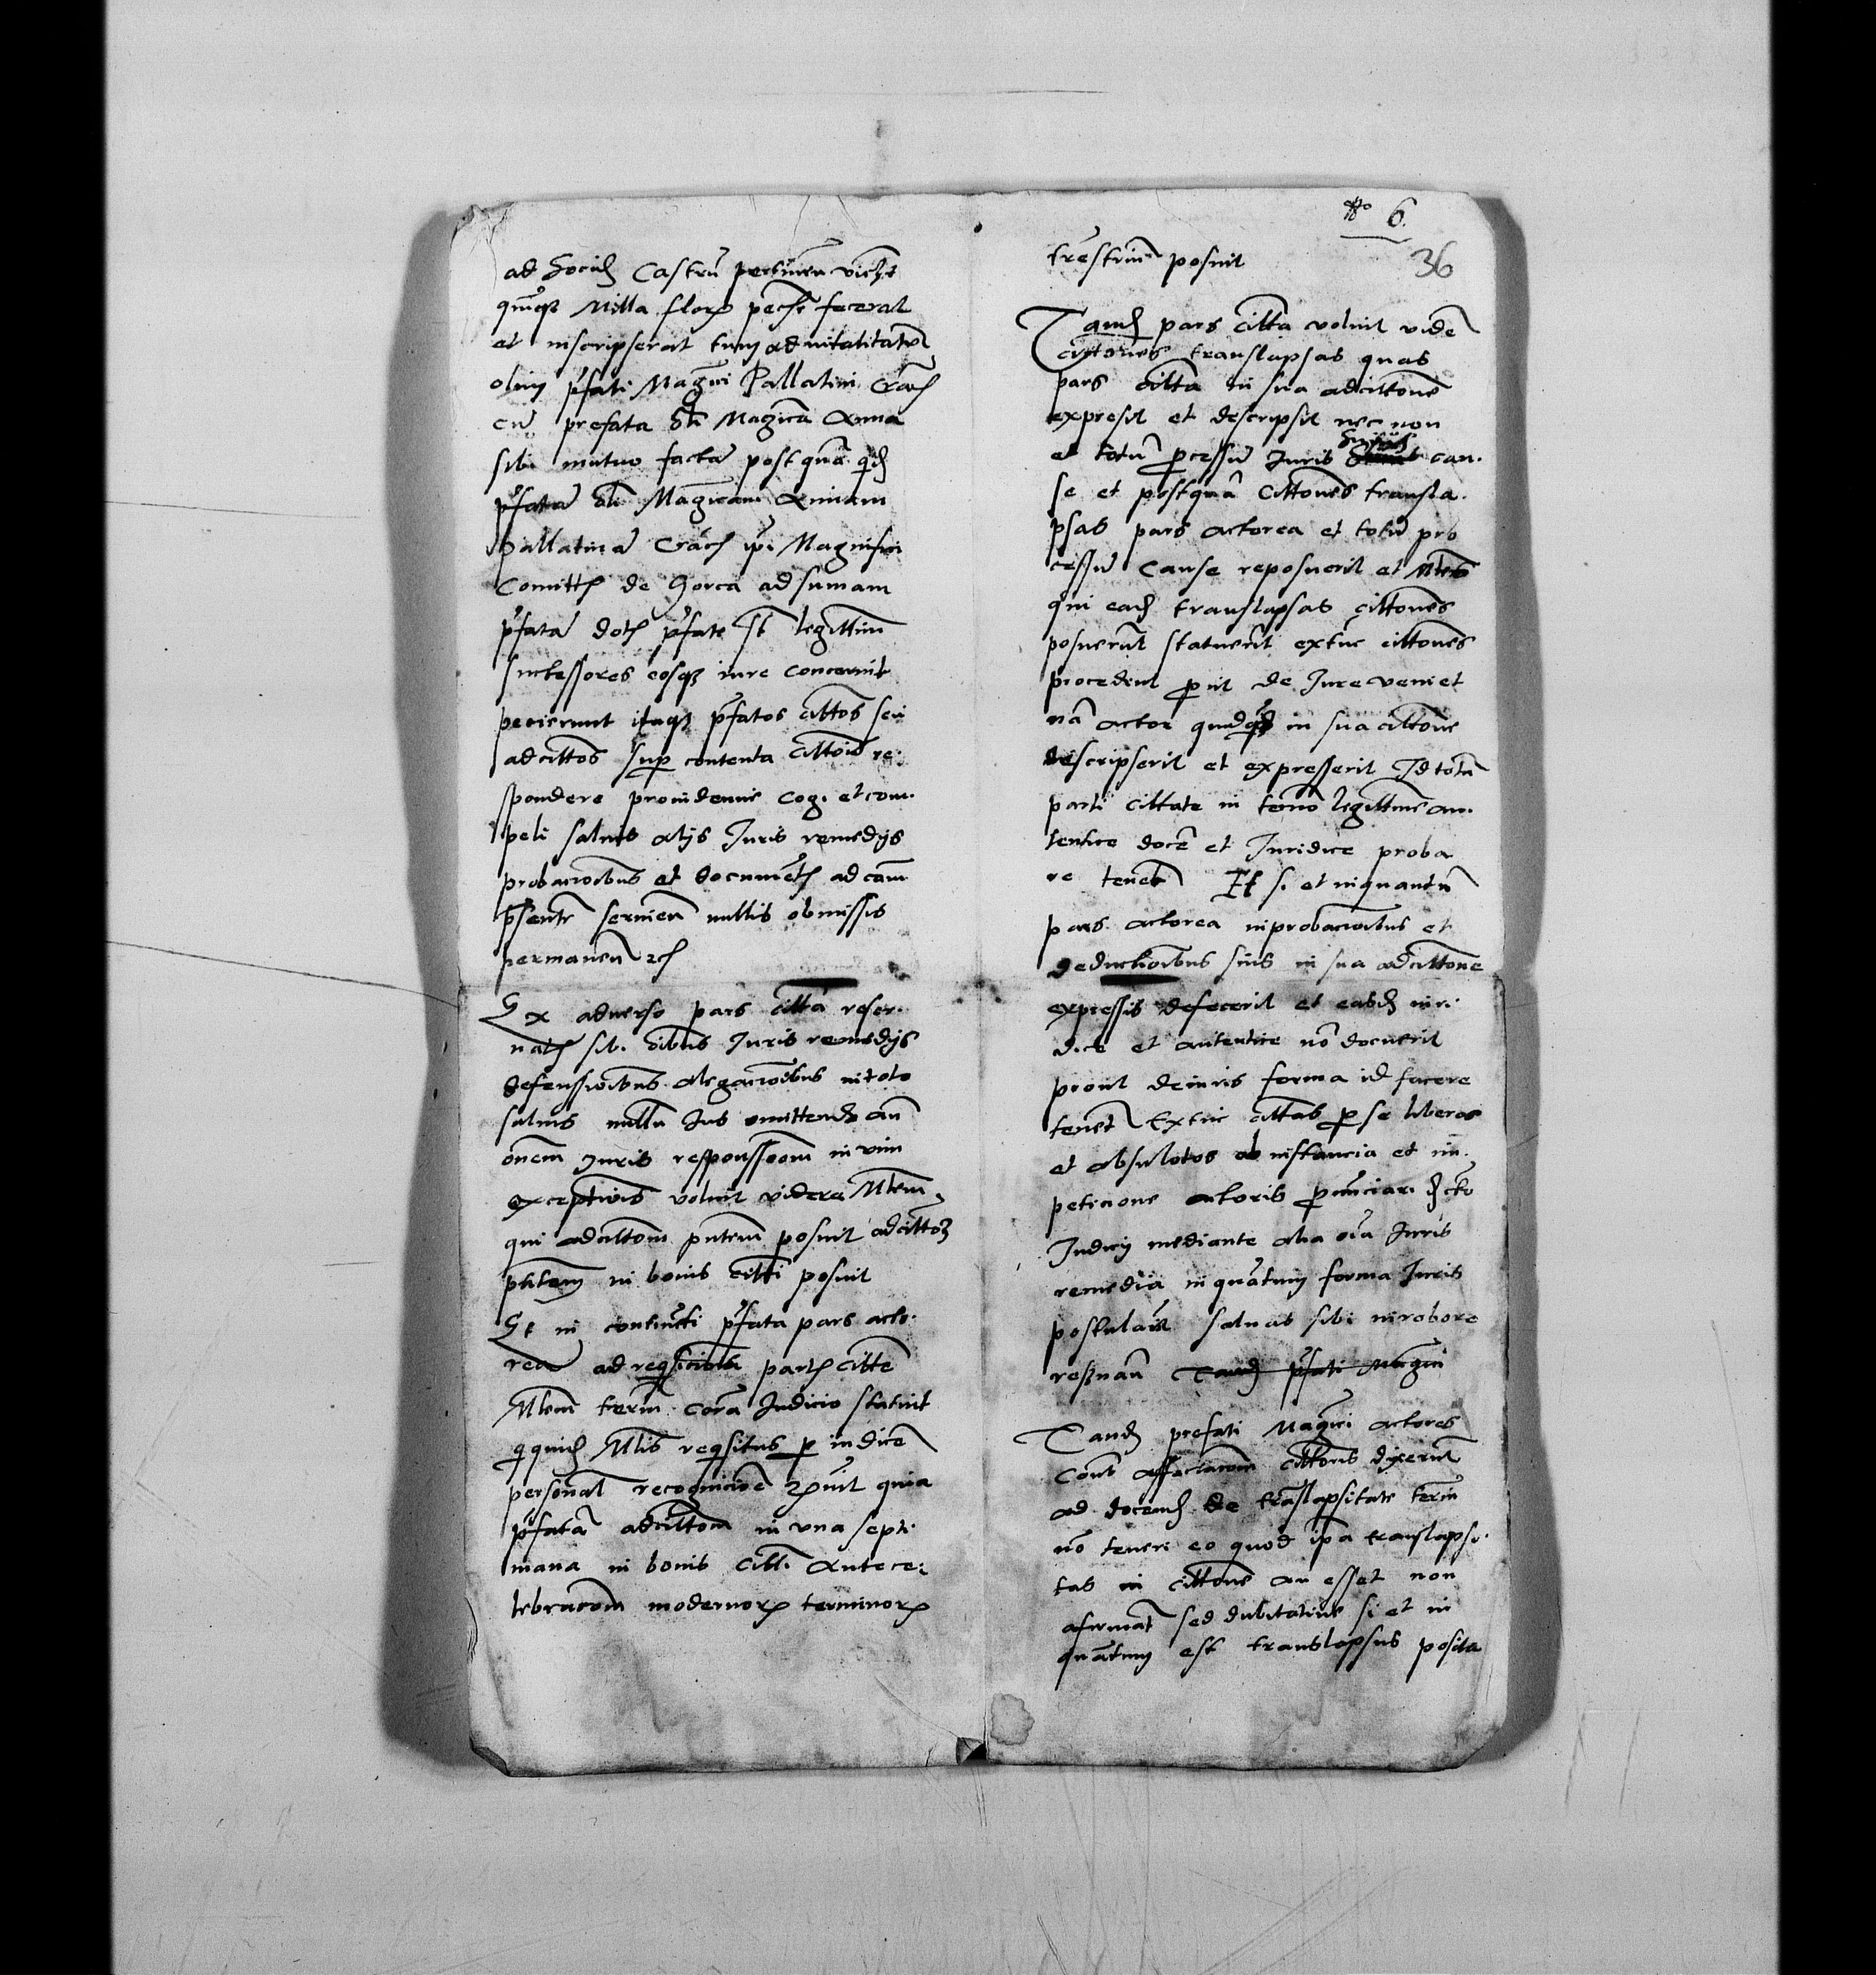 ad Castrũ pertinen̄ viczt
quīqz Milla florꝝ pecḥ fecerat
et inscripserat tum advitalitatē
olim pfati Magci Pallatini Crac
cū prefata olī Magcā Anna
sibi mutuo facta postquā qd
pfatā olī Magcam Annam
Pallatinā Crac ipi Magnifici
Comitℓ de Gorca ad sumam
pfatā dotℓ pfate st legittimi
suctessores eosqz iure concernit
pecierunt itaqz pfatos cittos seu
adcittos sup contenta cittõis re-
spondere providemie cogi et com-
peli salvis alijs Juris remedijs
probacioibus et documētℓ ad cām
psentē servien̄ nullis obmissis
permanen̄
Ex adverso pars citta reser-
vatℓ sibi oibus Juris remedijs
defenssioibus alegacioibus in toto
salvis nullū Jus omittendo an̄
oñem Juris responssionem in vim
exceptiõis voluit videre Mtem
qui adcittom pntem posuit adcittõz
pntem in bonis citti posuit
Et in continēti pfata pars acto-
rea ad reqsicionē partℓ citte
Mtem terrm corā Judicio statuit
qquid Mtis reqsitus p iudicē
personal recognicioē quia
pfatā adcittom in una septi-
mana in bonis citti Ante ce-
lebracom modernorꝝ terminorꝝ
No 6.
36
trestrium posuit
Tandē pars citta voluit videre
cittones translapsas quas
pars citta in sua adcittone
expresit et descripsit nec non
et totū pcessū Juris cau-
se et postquā cittones transla-
psas pars actorea et totū pro
cessū Cause reposuerit et Mtes
qui easd translapsas cittones
posuerūt statuerīt extūc cittones
procedent put de Jure veniet
nā actor quidqd in sua cittone
descripserit et expresserit Id totū
parti cittate in termo legittime au-
tentice docē et Juridice proba
re tenet Et si et inquantū
pars actorea in probacioibus et
deductioibus suis in sua adcittone
expressis defecerit et easd iuri-
dice et autentice nō docuerit
prout de iuris forma id facere
tenet Extūc cittas p se liberos
et absulutos ab instancia et im-
peticione actoris pnūciari dcto
Judicij mediante alia oīa Juris
remedia in quātum forma Juris
postulat salvas sibi in robore
resvan̄ Tandē pfati Magci
Tandē prefati Magci actores
Contᵃ affectacom cittoris dixerūt
ad docend de trāslapsitate termī
nō teneri eo quod ipa translapsi-
tas in cittone an esset non
afirmat sed dubitative si et in
quātum est translapsus posita